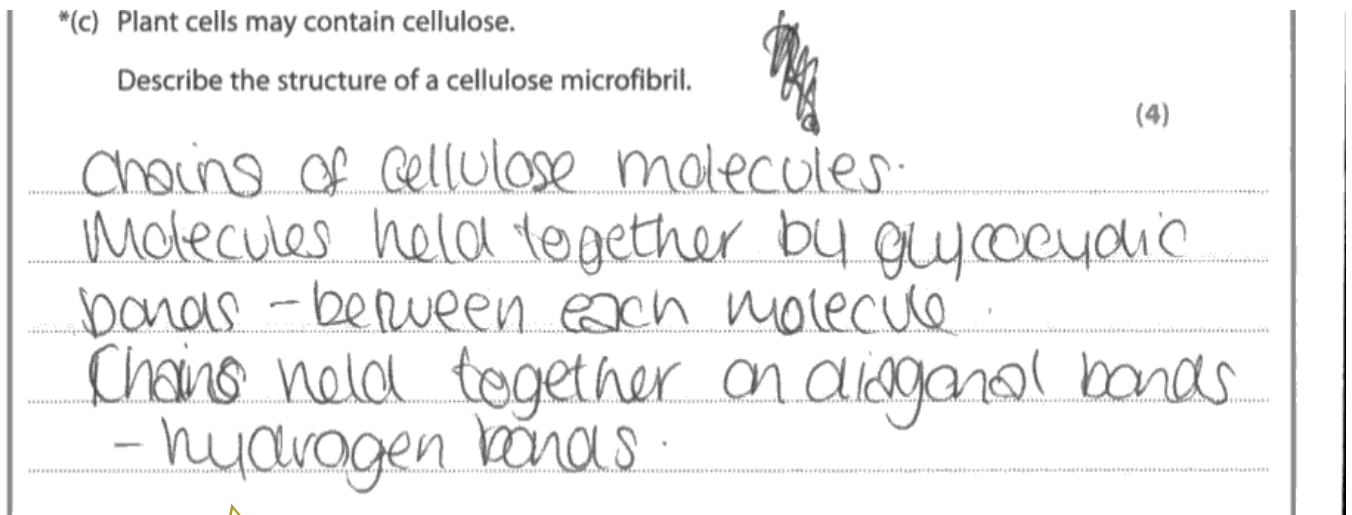 *(c) Plant cells may contain cellulose.
Describe the structure of a cellulose microfibril.
(4)
Chains of cellulose molecules.
Molecules held together by glycocydic
bonds - between each molecule.
Chains held together on diagonal bonds
- hydrogen bonds.